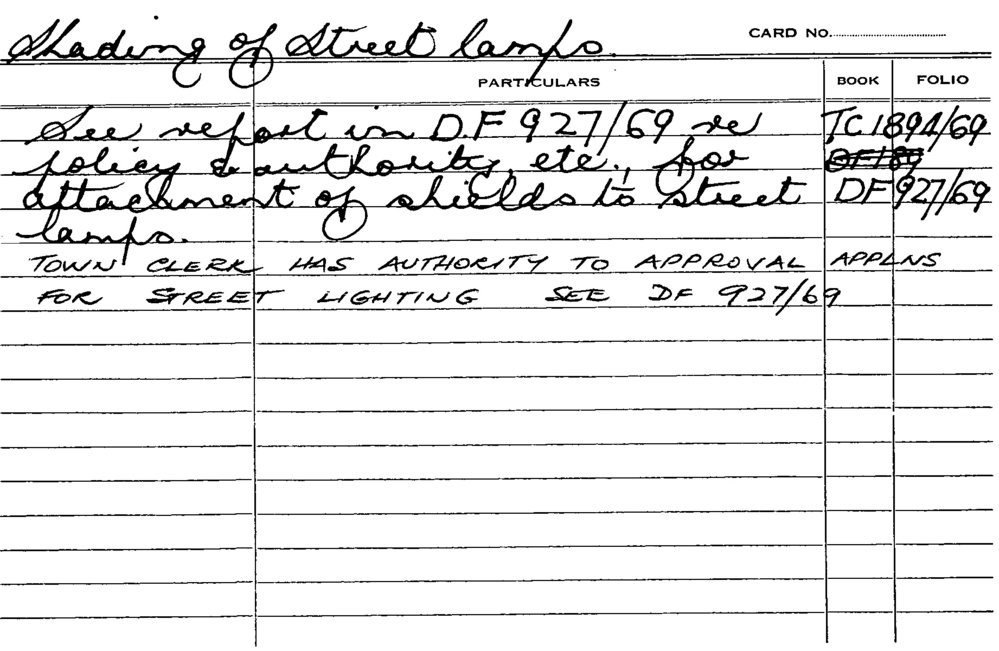 Shading of Street lamps. CARD NO.
PARTICULARS BOOK FOLIO
See report in D.F 927/69 re TC1894/69
policy & authority, etc., for
attachment of shields to Street DF927/69
lamps.
TOWN CLERK HAS AUTHORITY TO APPROVAL APPLNS
FOR STREET LIGHTING SEE DF 927/69